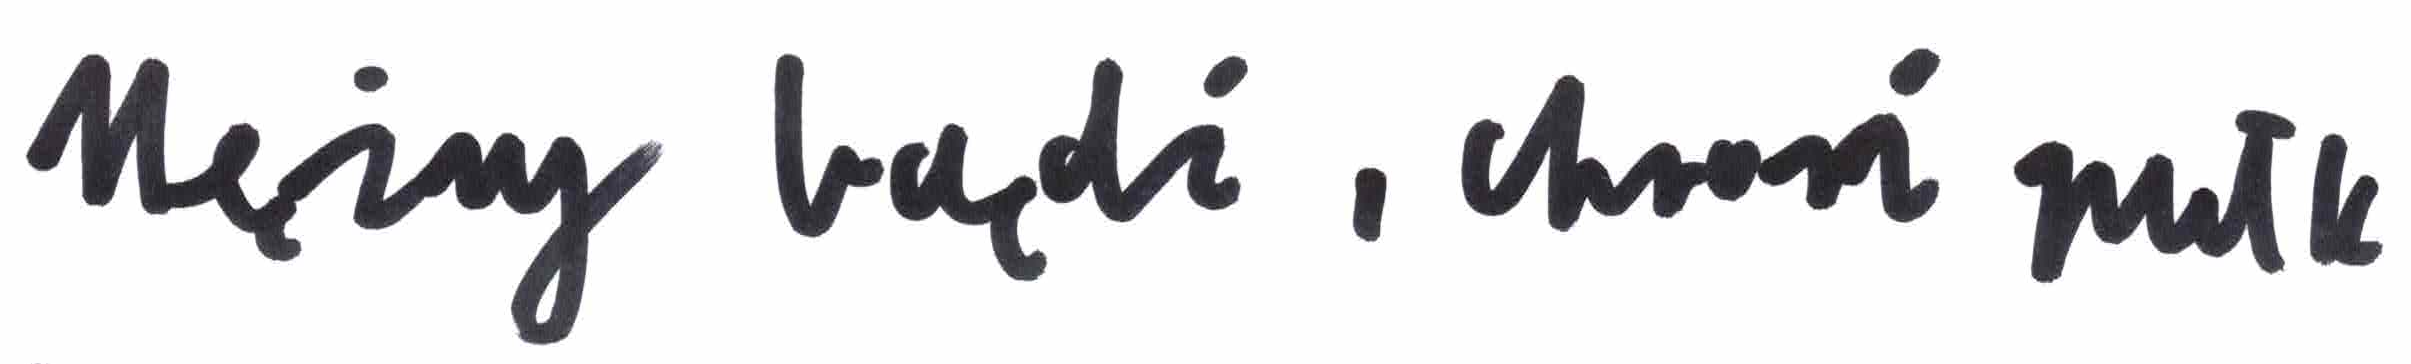 Mężny bądź, chroń pułk